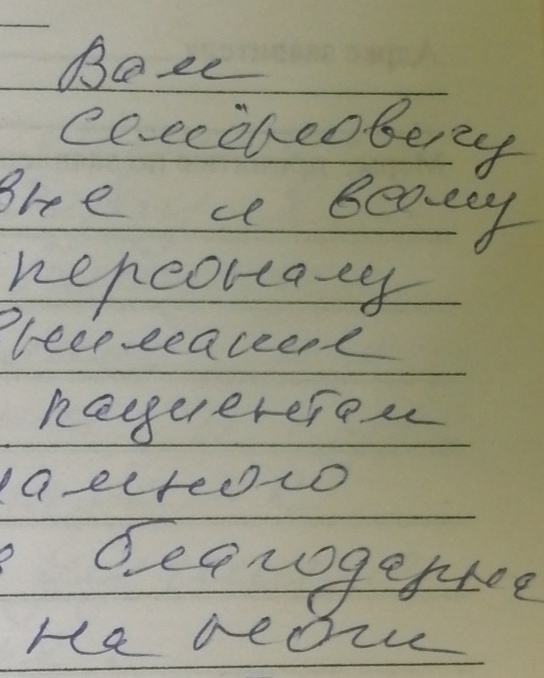 Вам
Семёновичу
вне и всему
персоналу
внимание
пациентам
намного
благодарна
на ноги